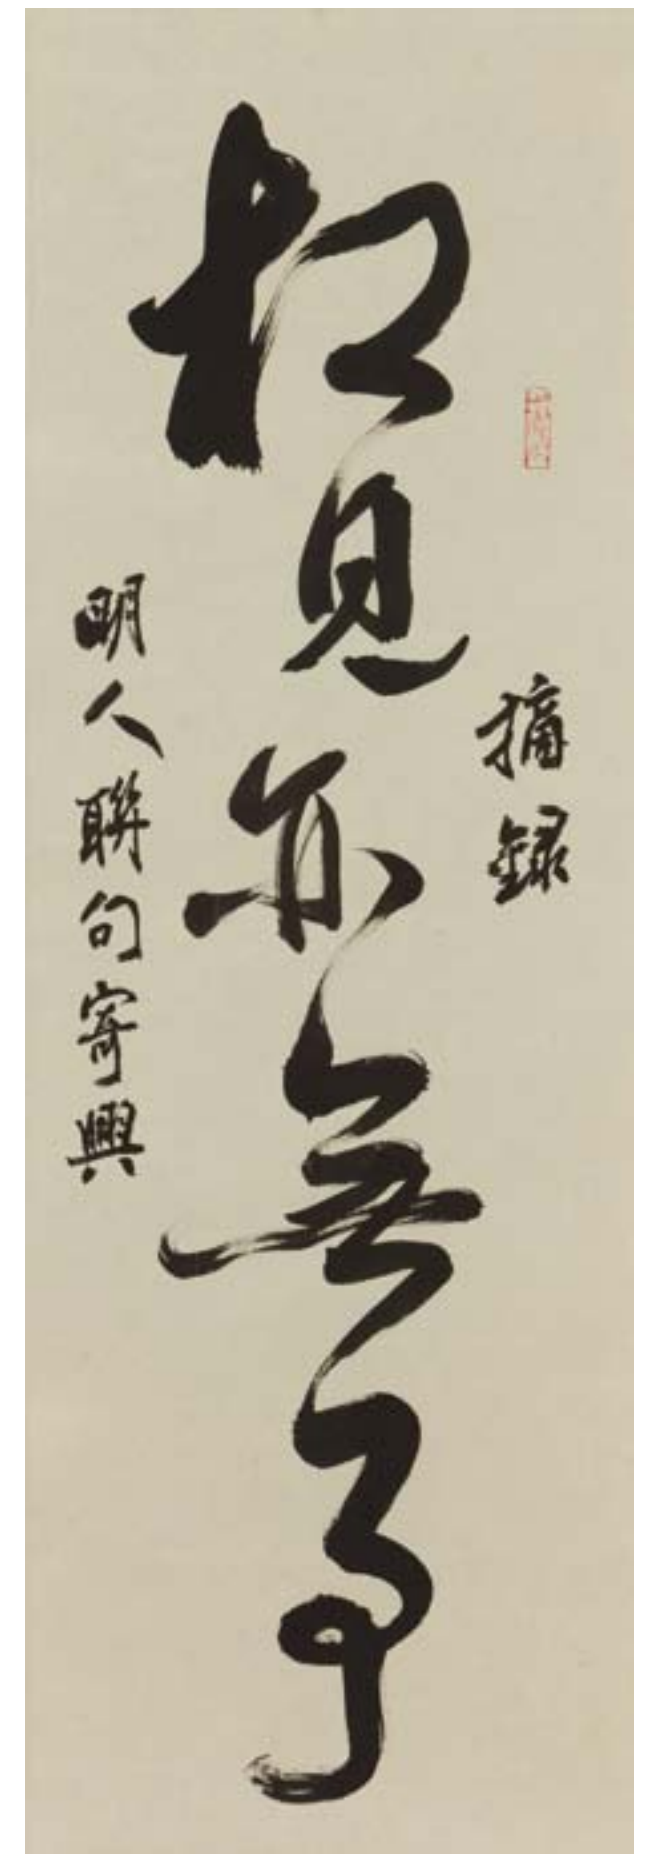 摘録
相見亦無事
明人聯句寄興